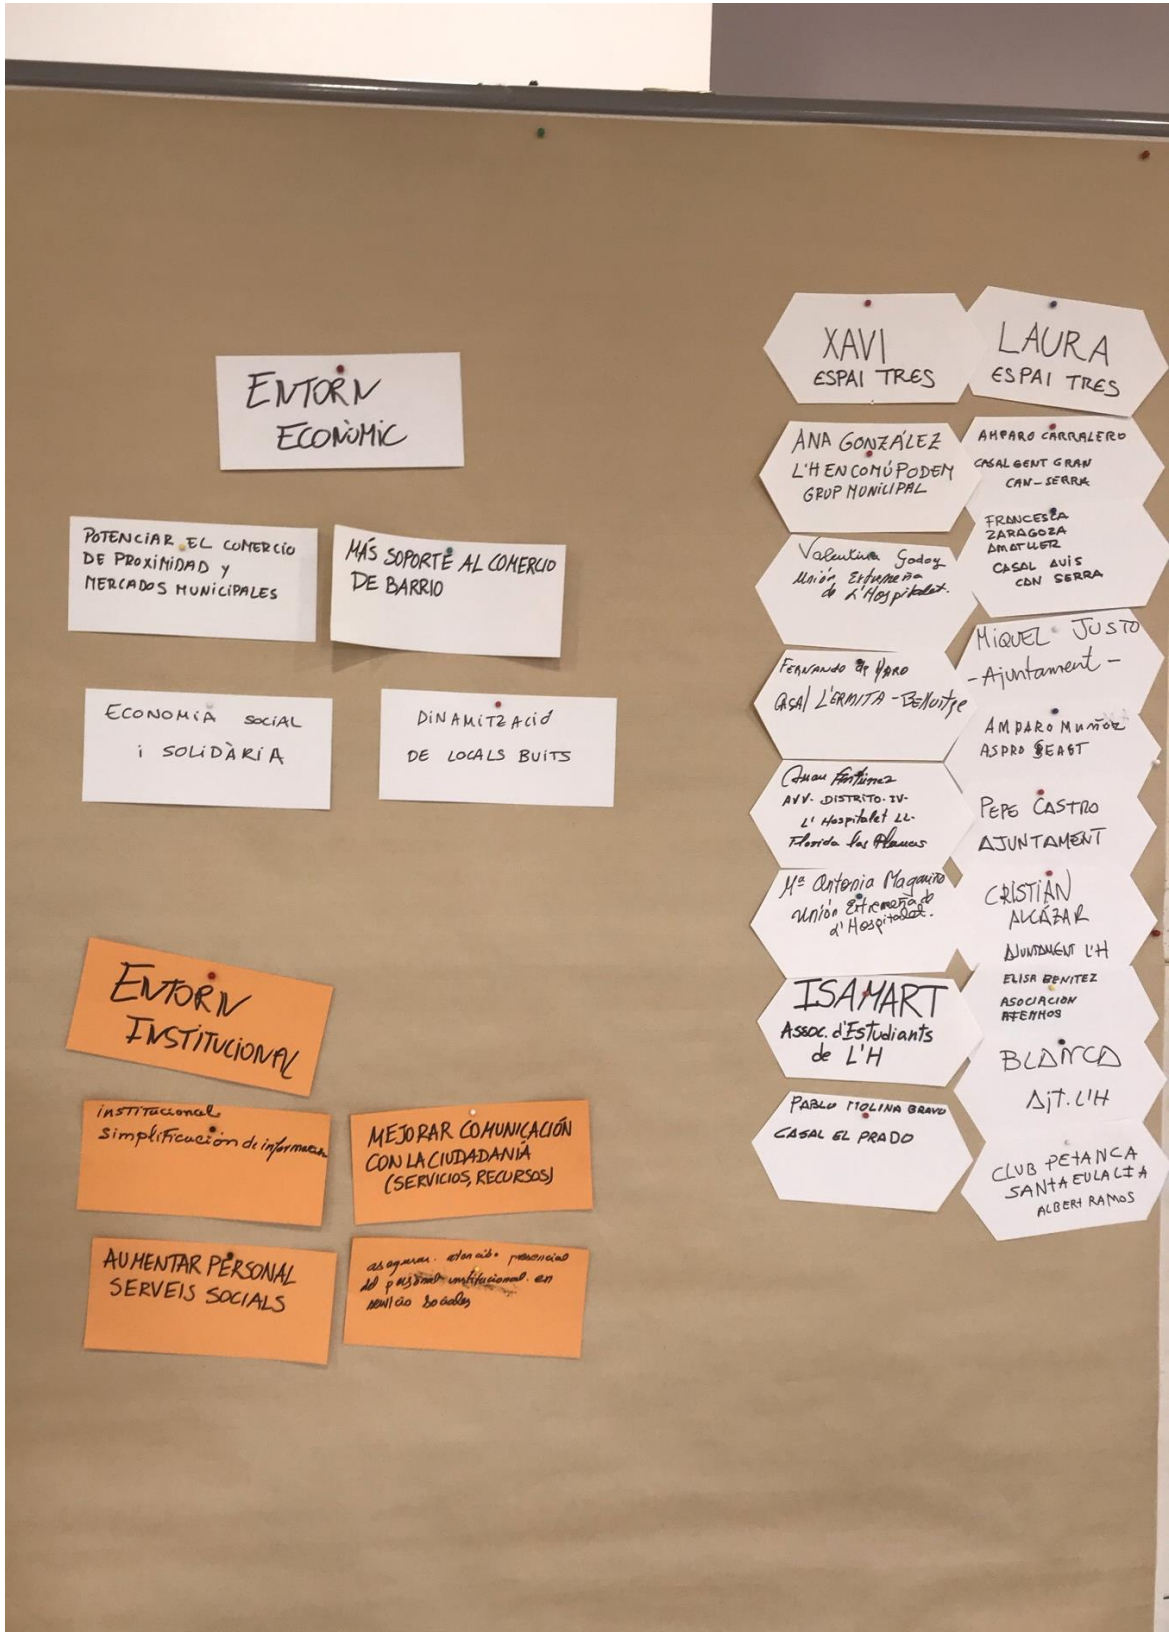 ENTORN
ECONÒMIC
POTENCIAR EL COMERCIO
DE PROXIMIDAD Y
MERCADOS MUNICIPALES
MÁS SOPORTE AL COMERCIO
DE BARRIO
ECONOMIA SOCIAL
i SOLIDÀRIA
DINAMITZACIÓ
DE LOCALS BUITS
ENTORN
INSTITUCIONAL
institucional
Simplificación de informacion
MEJORAR COMUNICACIÓN
CON LA CIUDADANÍA
(SERVICIOS, RECURSOS)
AUMENTAR PERSONAL
SERVEIS SOCIALS
asegurar presencial
del personal institucional en
servicio sociales
XAVI
ESPAI TRES
ANA GONZÁLEZ
L'H EN COMÚ PODEM
GRUP MUNICIPAL
Valentina Godoy
Unión Extremeña
de L'Hospitalet.
FERNANDO de HARO
CASAl L'ERMITA - BEllvitge
Juan
AVV. DISTRITO-IV-
L'Hospitalet LL.
Florida las Planas
Mª Antonia
Unión Extremeña de
L'Hospitalet.
ISAMART
Assoc. d'Estudiants
de L'H
PABLO MOLINA BRAVO
CASAL EL PRADO
LAURA
ESPAI TRES
AMPARO CARRALERO
CASAL GENT GRAN
CAN-SERRA
FRANCESCA
ZARAGOZA
AMATLLER
CASAL AVIS
CAN SERRA
MIQUEL JUSTO
- Ajuntament -
AMPARO MUÑOZ
ASPRO
PEPE CASTRO
AJUNTAMENT
CRISTIAN
ALCÁZAR
AJUNTAMENT L'H
ELISA BENITEZ
ASOCIACION
BLANCA
AjT. L'H
CLUB PETANCA
SANTA EULALIA
ALBERT RAMOS